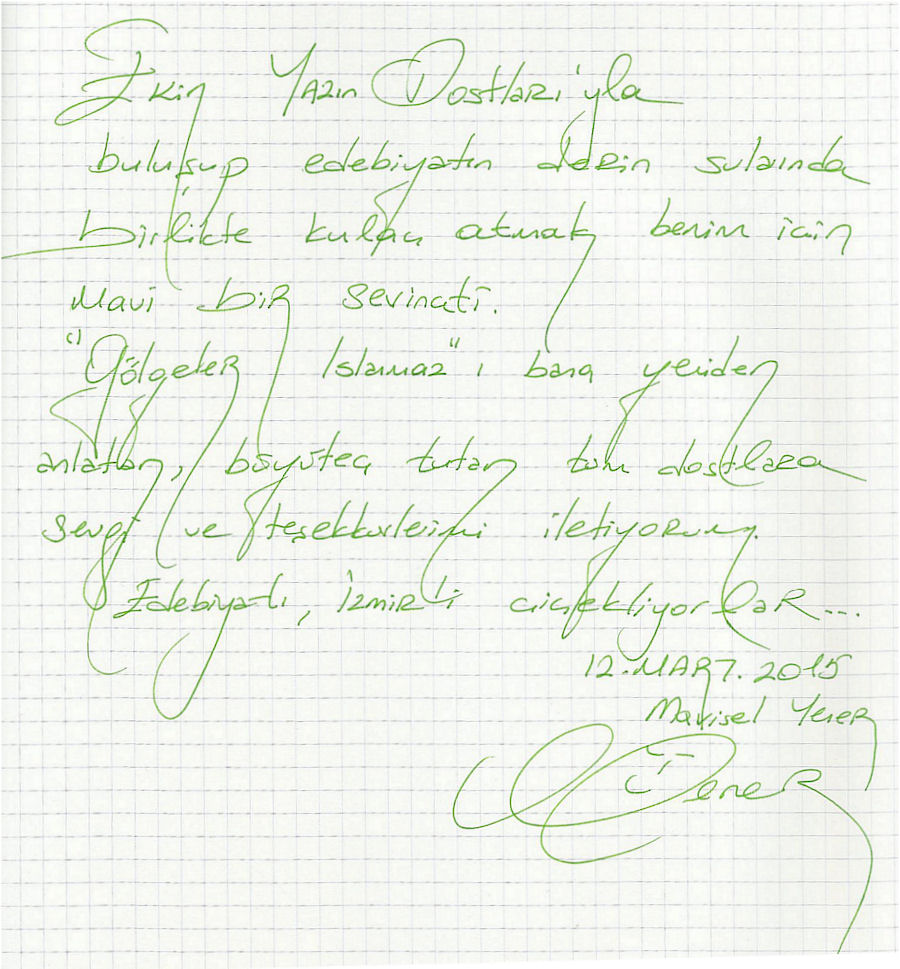 Ekin Yazın Dostları'yla
buluşup edebiyatın derin sularında
birlikte kulaç atmak benim için
mavi bir sevinçti.
"Gölgeler Islanmaz"ı bana yeniden
anlatan, büyüteç tutan tüm dostlara
sevgi ve teşekkürlerimi iletiyorum.
Edebiyatı, İzmir'i çiçekliyorlar...
12.MART.2015
Mavisel Yener
Yener